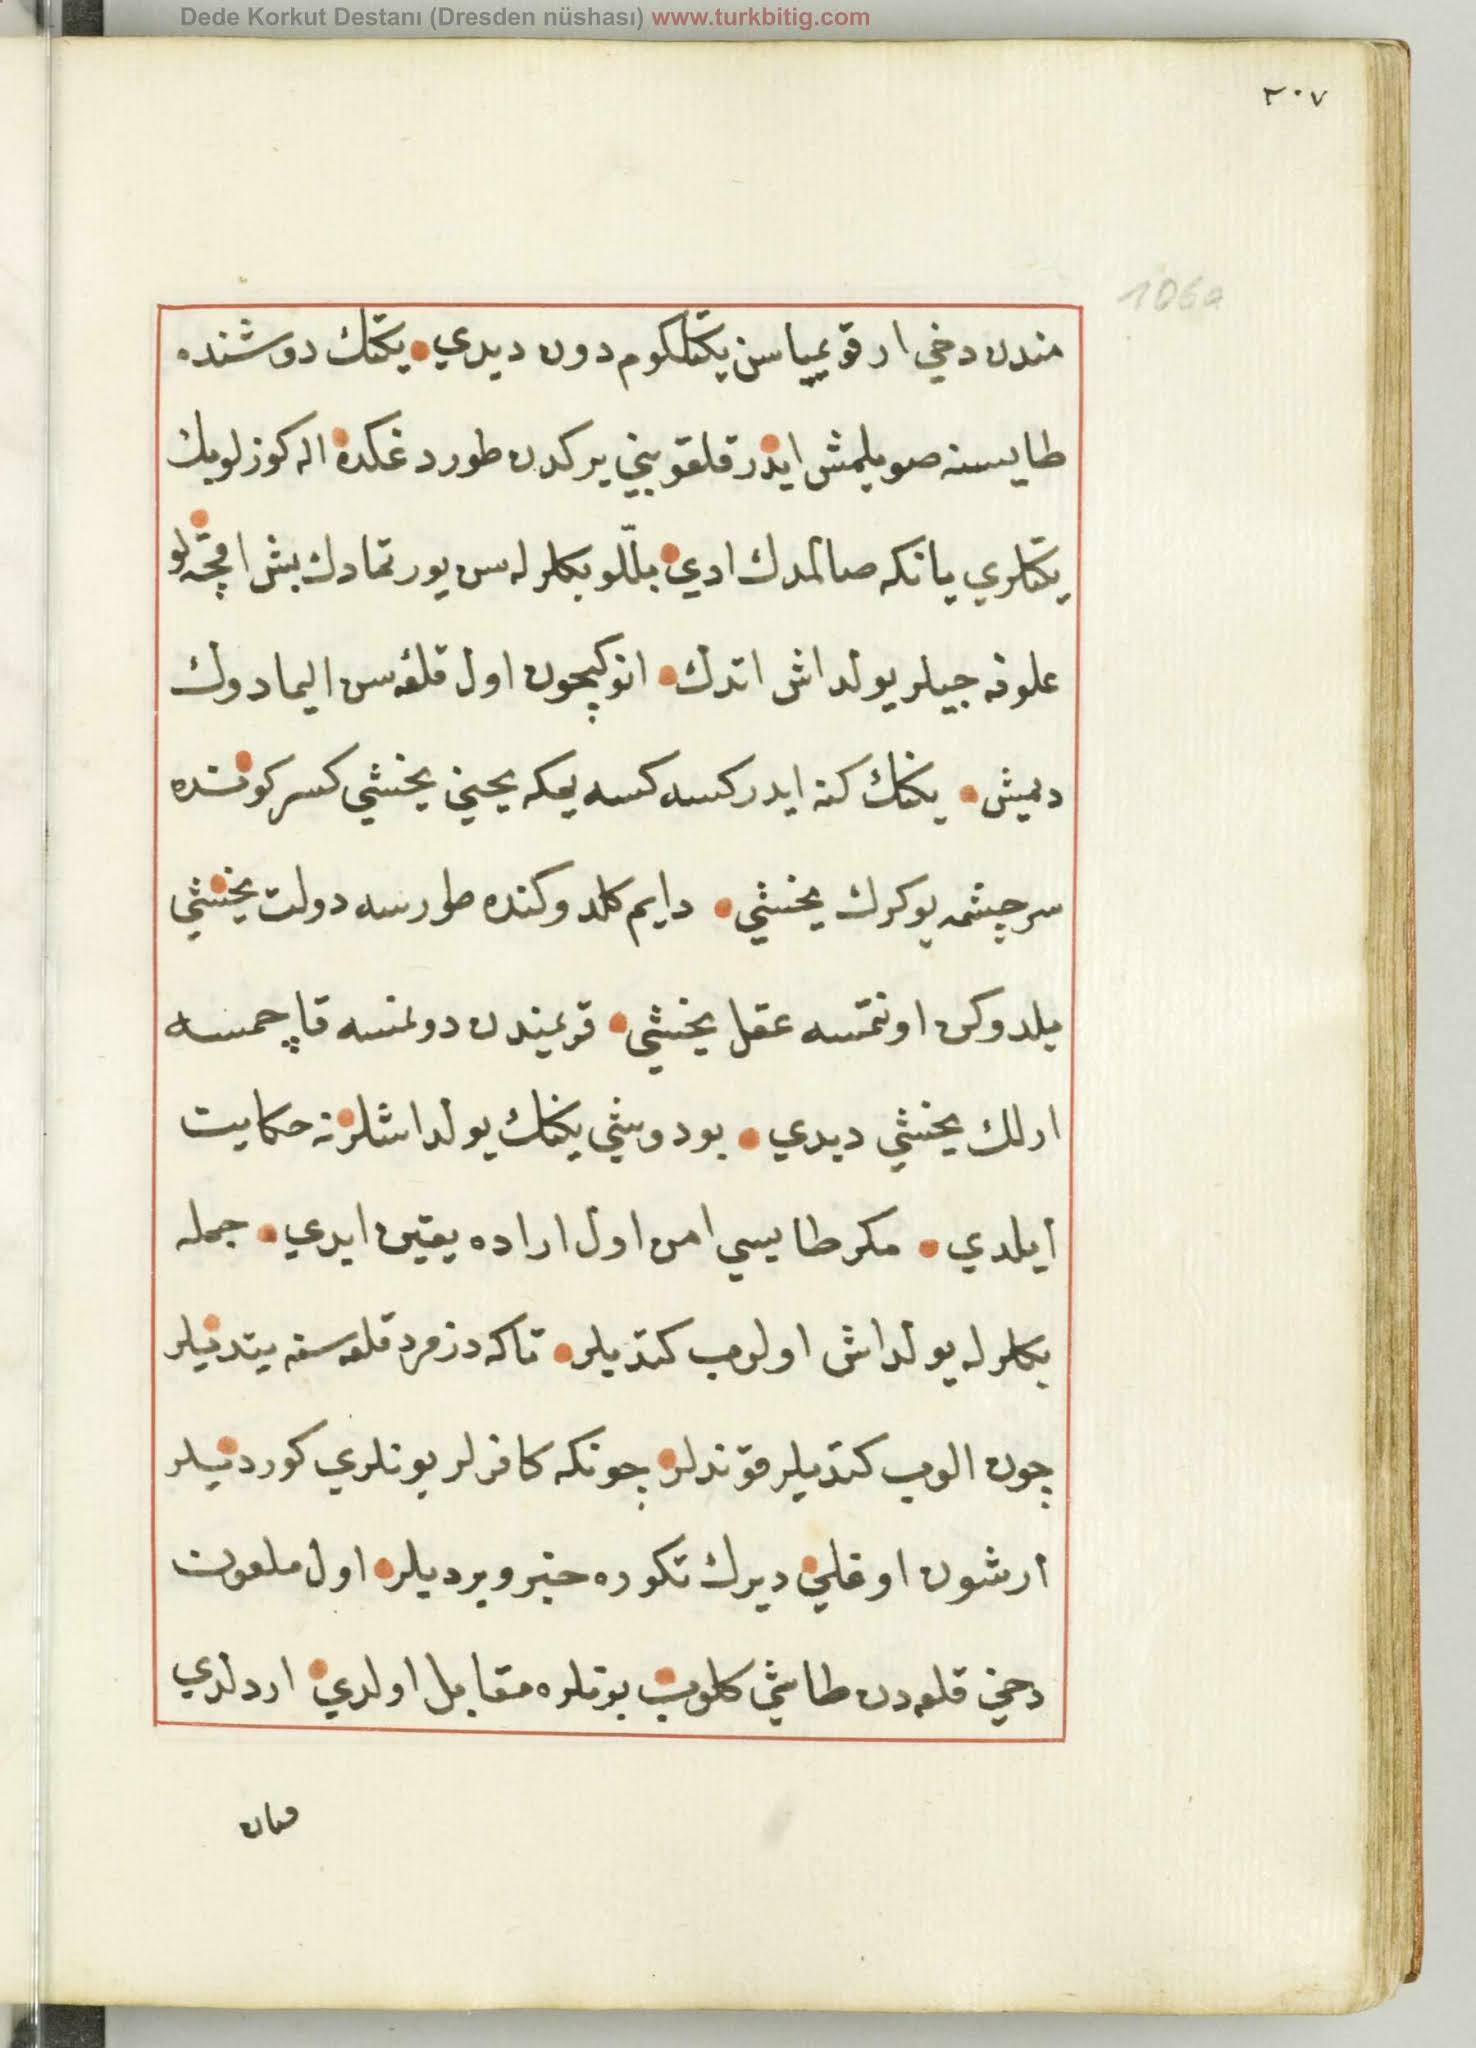 Dede Korkut Destanı (Dresden nüshası) www.turkbitig.com
٢٠٧
106a
مندن دخي ار قوبمياسن يكتلكوم دون ديدي يكنك دوشنده
طايسنه صويلمش ايدر قلقوبني يركدن طوردغكده اله كوزلو بك
يكتلري يانكه صالمدك ادي بللو بكلرله سن يورتمادك بش اقچه لو
علوفه جيلر يولداش اتدك انوكيچون اول قلعه سن اليمادوك
ديمش يكنك كنه ايدر كسه كسه يمكه يحني يخشي كسر كونده
سرچشمه يوكرك يخشي دايم كلدوكنده طورسه دولت يخشي
بلدوكن اونتمسه عقل يخشي قريمندن دونمسه قاچمسه
ارلك يخشي ديدي بو دوشي يكنك يولداشلرنه حكايت
ايلدي مكر طايسي امن اول اراده يقين ايدي جمله
بكلرله يولداش اولوب كتديلر تاكه دزمرد قلعه سنه يتديلر
چون الوب كتديلر قوندلر چونكه كافرلر بونلري كورديلر
ارشون اوغلي ديرك تكوره خبر ويرديلر اول ملعون
دخي قلعه دن طاشي كلوب بونلره مقابل اولدي ار دلدي